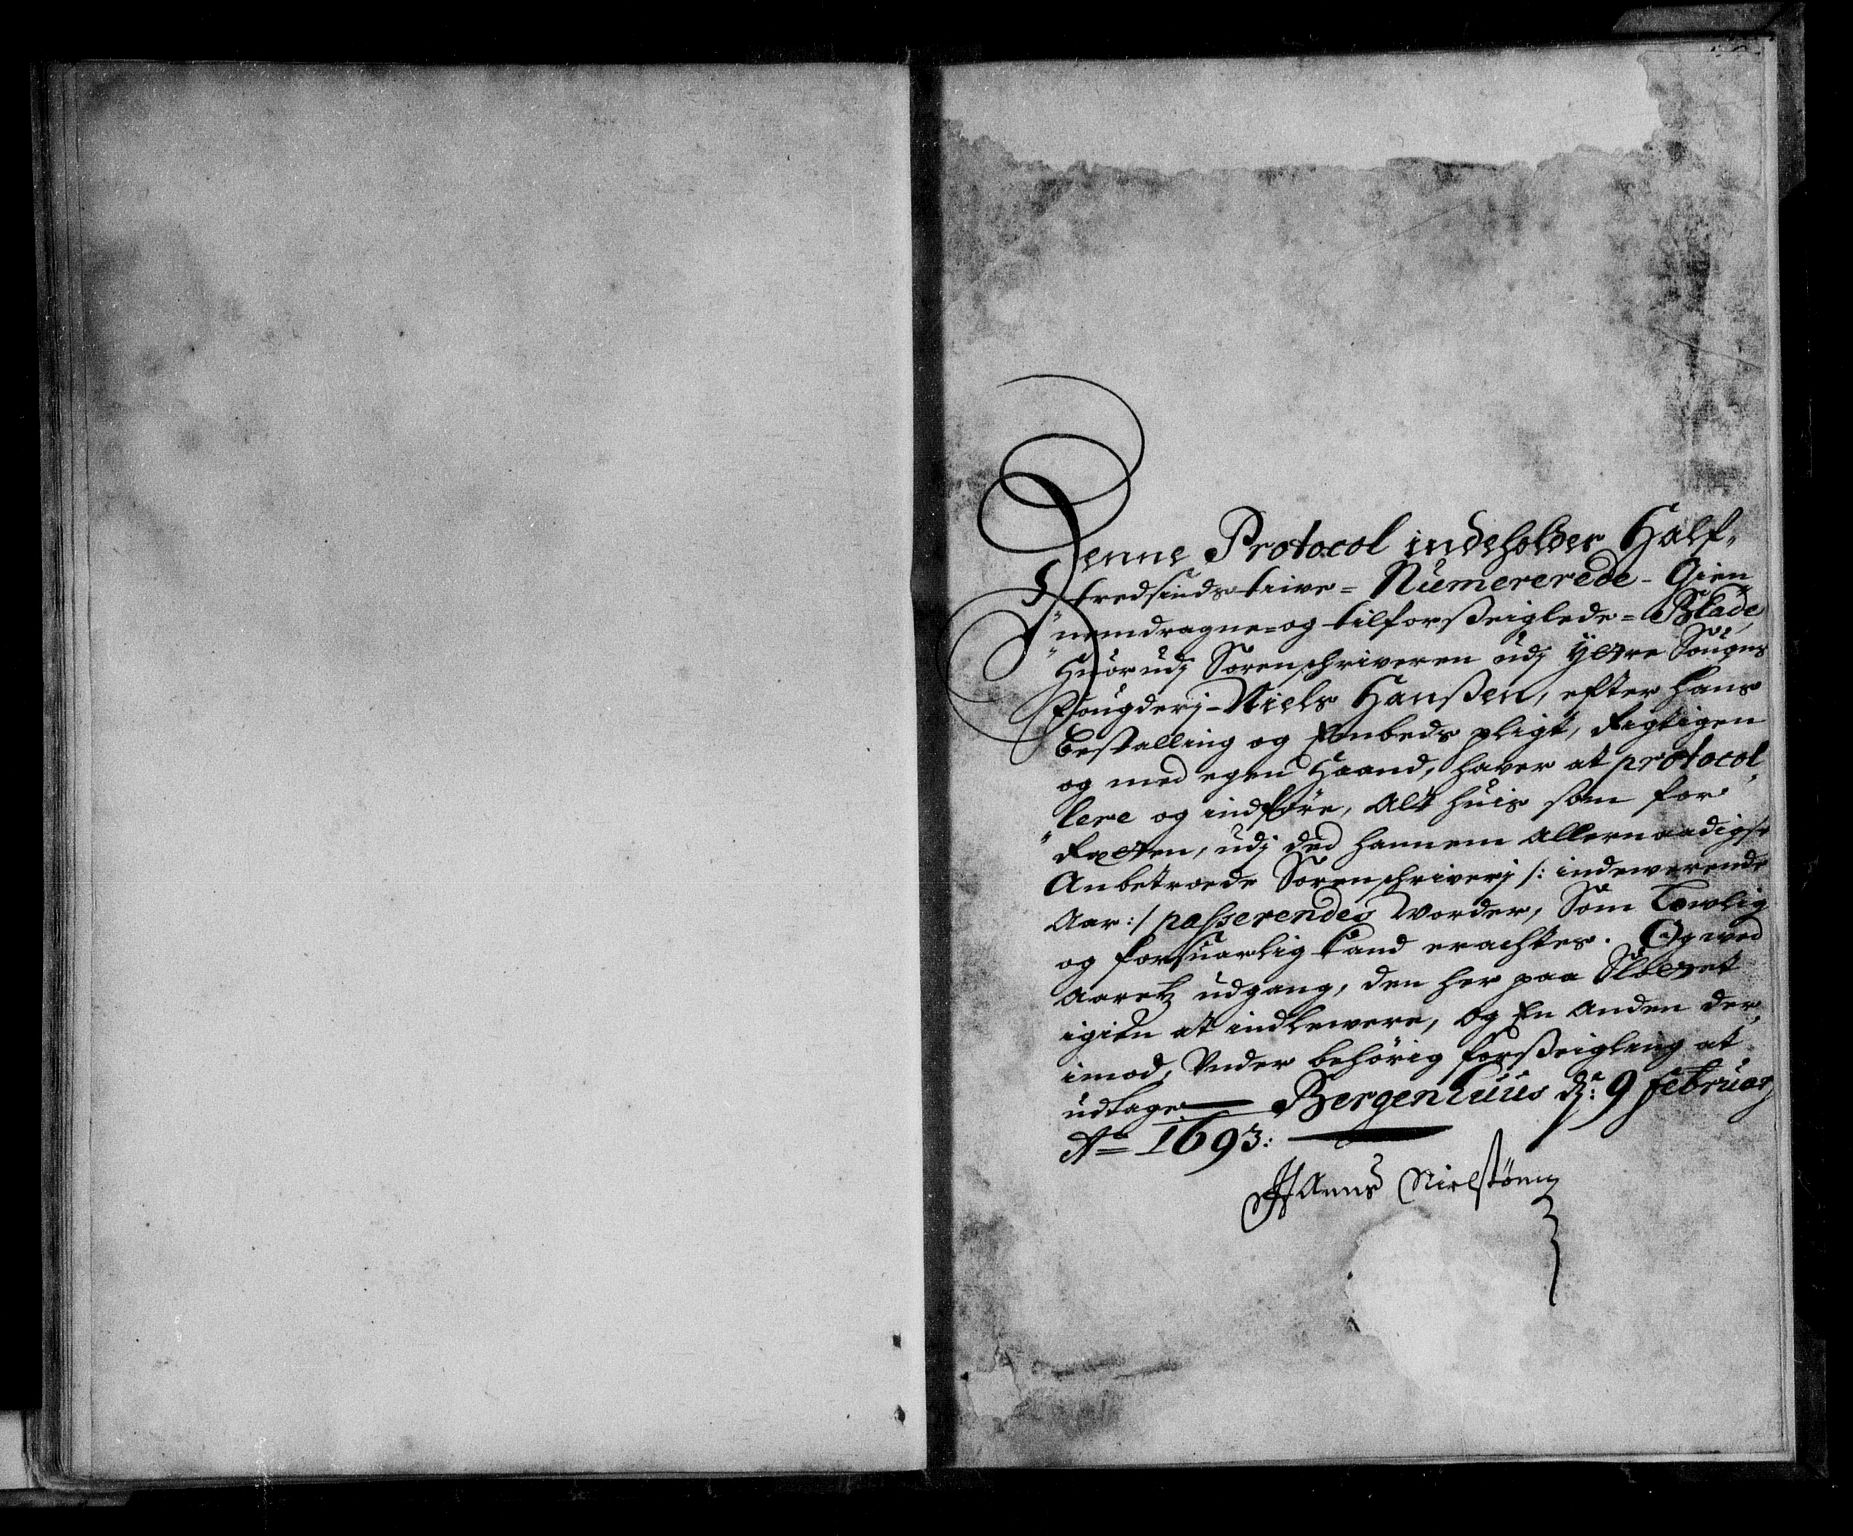 Denne Protocol indeholder Half-
tredsinds tiive = Numererede - Gien-
nemdragne = og tilforseiglede = Blade,
Huor udj Sorenschriveren udj Yttre Sougns
Fougderj - Niels Hanßen, efter hans
bestalling og Embeds pligt, Rigtigen
og med egen Haand, haver at protocol-
lere og indføre, Alt huis som for
Retten, udj ded hannem allernaadigst
Anbetroede Sorenschriverj /: indewerende
Aar :/ passerendes worder, Som Lowlig
og forsuarlig kand erachtes. Og wed
Aaretz udgang, den her paa Slottet
igien at indlewere, og En anden der-
imod, Under behørig forseigling at
udtage — Bergenhuus d: 9 Februarj
Ao 1693: